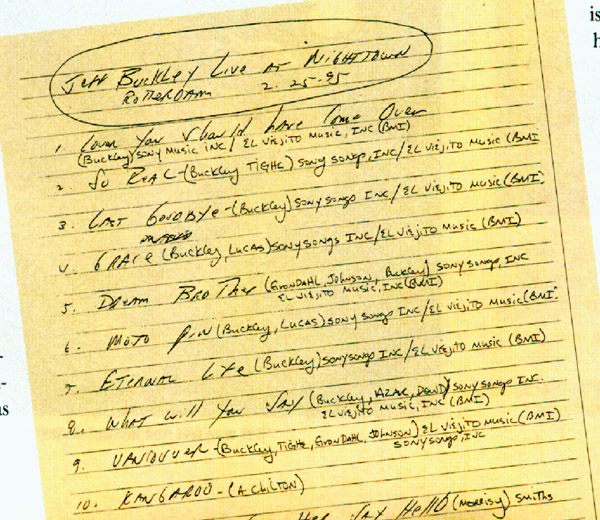 Jeff Buckley Live at Nighttown
Rotterdam 2.25.95
1. Lover You Should have Come Over
(Buckley) Sony Music Inc / El Viejito Music, Inc (BMI)
2. So Real - (Buckley Tighe) Sony Songs, Inc / El Viejito Music (BMI
3. Last Goodbye - (Buckley) Sony Songs Inc / El Viejito Music (BMI.
4. Grace (Buckley, Lucas) Sony Songs Inc / El Viejito Music (BMI)
5. Dream Brother (Grondahl, Johnson, Buckley) Sony Songs, Inc
El Viejito Music, Inc (BMI)
6. Mojo Pin (Buckley, Lucas) Sony Songs Inc / El Viejito Music (BMI.
7. Eternal Life (Buckley) Sony Songs Inc / El Viejito Music (BMI)
8. What Will You Say (Buckley, Azar, Dowd) Sony Songs Inc.
El Viejito Music, Inc (BMI)
9. Vancouver - (Buckley, Tighe, Grondahl, Johnson) El Viejito Music (BMI)
Sony Songs, Inc
10. Kangaroo - (A Chilton)
Her Say Hello (Morrisy) Smiths
is
h